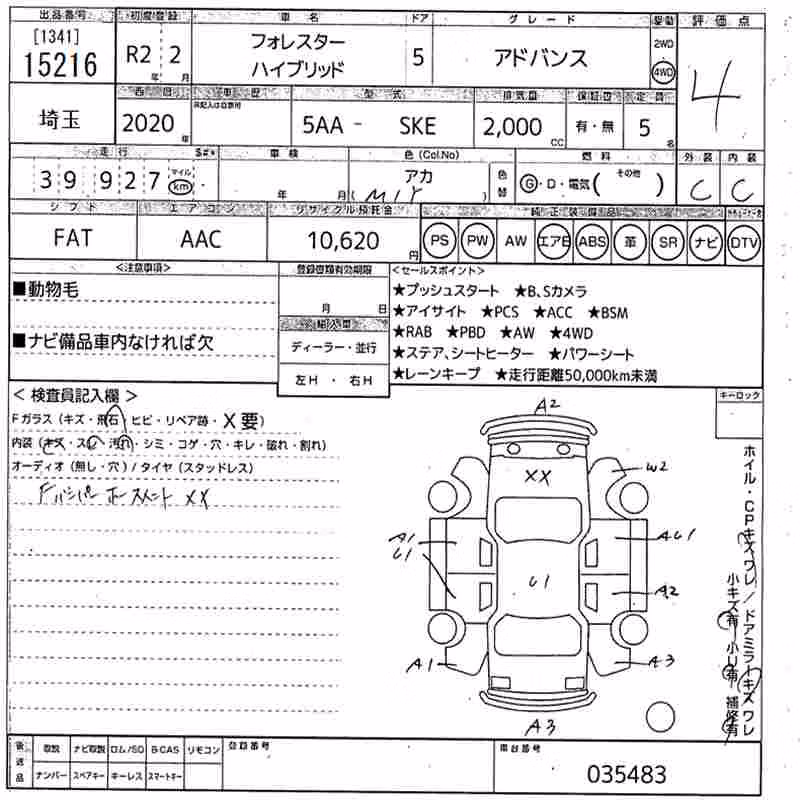 出品番号 初度登録 車名 ドア グレード 駆動 評価点
[1341] 15216 R2年 2月 フォレスター ハイブリッド 5 アドバンス 2WD 4WD 4
西暦 車歴 型式 排気量 保証書 定員
埼玉 2020年 未記入は自家用 5AA - SKE 2,000cc 有・無 5名
走行 S#* 車検 色(Col.No) 燃料 外装 内装
39927 マイル km 年 月 アカ (M1Y) 色替 G・D・電気( その他 ) C C
シフト エアコン リサイクル預託金 純正装備品
FAT AAC 10,620円 PS PW AW エアB ABS 革 SR ナビ DTV
<注意事項> 登録書類有効期限 <セールスポイント>
■動物毛 月 日 ★プッシュスタート ★B,Sカメラ
★アイサイト ★PCS ★ACC ★BSM
輸入車 ★RAB ★PBD ★AW ★4WD
■ナビ備品車内なければ欠 ディーラー・並行 ★ステア,シートヒーター ★パワーシート
左H・右H ★レーンキープ ★走行距離50,000km未満
<検査員記入欄> キーロック
Fガラス(キズ・飛石・ヒビ・リペア跡・X要)
内装(キズ・スレ・汚れ・シミ・コゲ・穴・キレ・破れ・割れ)
オーディオ(無し・穴)/タイヤ(スタッドレス)
Fバンパー ホースメント XX
A2
XX
W2
A1
U1
AU1
U1
A2
A1
A3
A3
ホイル・CPキズワレ/ドアミラーキズワレ
小キズ有・小U有・補修有
後送品 取説 ナビ取説 ロム/SD B-CAS リモコン 登録番号 車台番号
ナンバー スペアキー キーレス スマートキー 035483